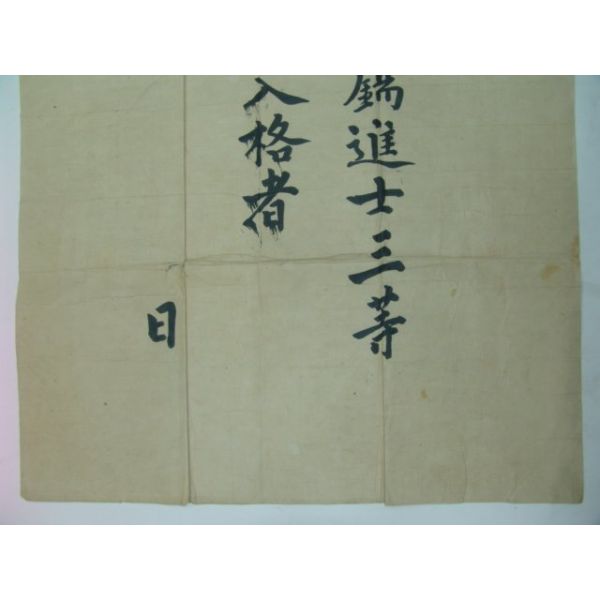 進士三等
入格者
日